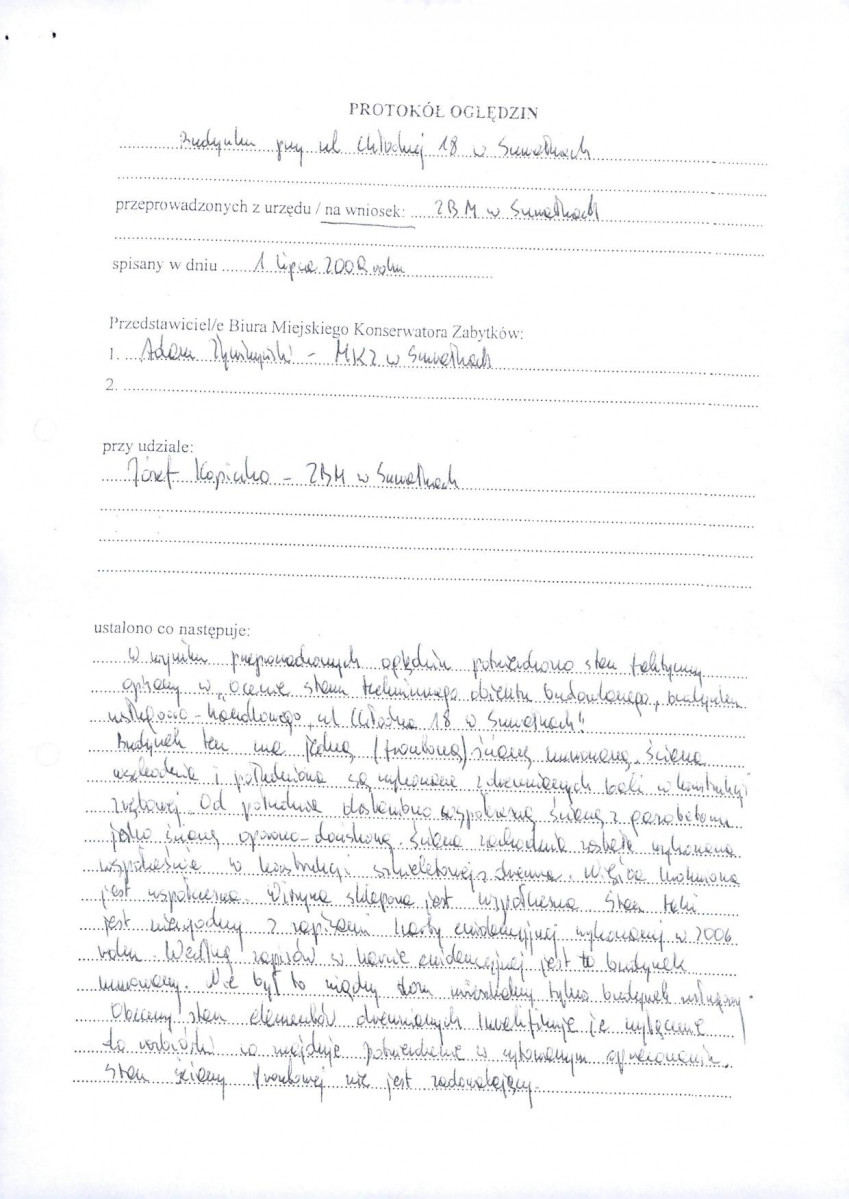 PROTOKÓŁ OGLĘDZIN
budynku przy ul Chłodnej 18 w Suwałkach
przeprowadzonych z urzędu / na wniosek: ZBM w Suwałkach
spisany w dniu 1 lipca 2009 roku
Przedstawiciel/e Biura Miejskiego Konserwatora Zabytków:
1. Adam Żywiczyński - MKZ w Suwałkach
2.
przy udziale:
Józef Kopiczko - ZBM w Suwałkach
ustalono co następuje:
W wyniku przeprowadzonych oględzin potwierdzono stan faktyczny
opisany w „ocenie stanu technicznego obiektu budowlanego, budynku
usługowo-handlowego, ul Chłodna 18 w Suwałkach"
Budynek ten ma jedną (frontową) ścianę murowaną. Ściana
wschodnia i południowa są wykonane z drewnianych bali w konstrukcji
zrębowej. Od południa współczesną ścianę z gazobetonu
jako ścianę. Ściana zachodnia została wykonana
współcześnie w konstrukcji szkieletowej z drewna. Więźba
jest współczesna. Witryna sklepowa jest współczesna Stan taki
jest niezgodny z zapisami karty ewidencyjnej wykonanej w 2006
roku. Według zapisów w karcie ewidencyjnej jest to budynek
murowany. Nie był to nigdy dom mieszkalny tylko budynek usługowy.
Obecny stan elementów drewnianych kwalifikuje je wyłącznie
do rozbiórki co znajduje potwierdzenie w wykonanym opracowaniu.
Stan ściany frontowej nie jest zadowalający.